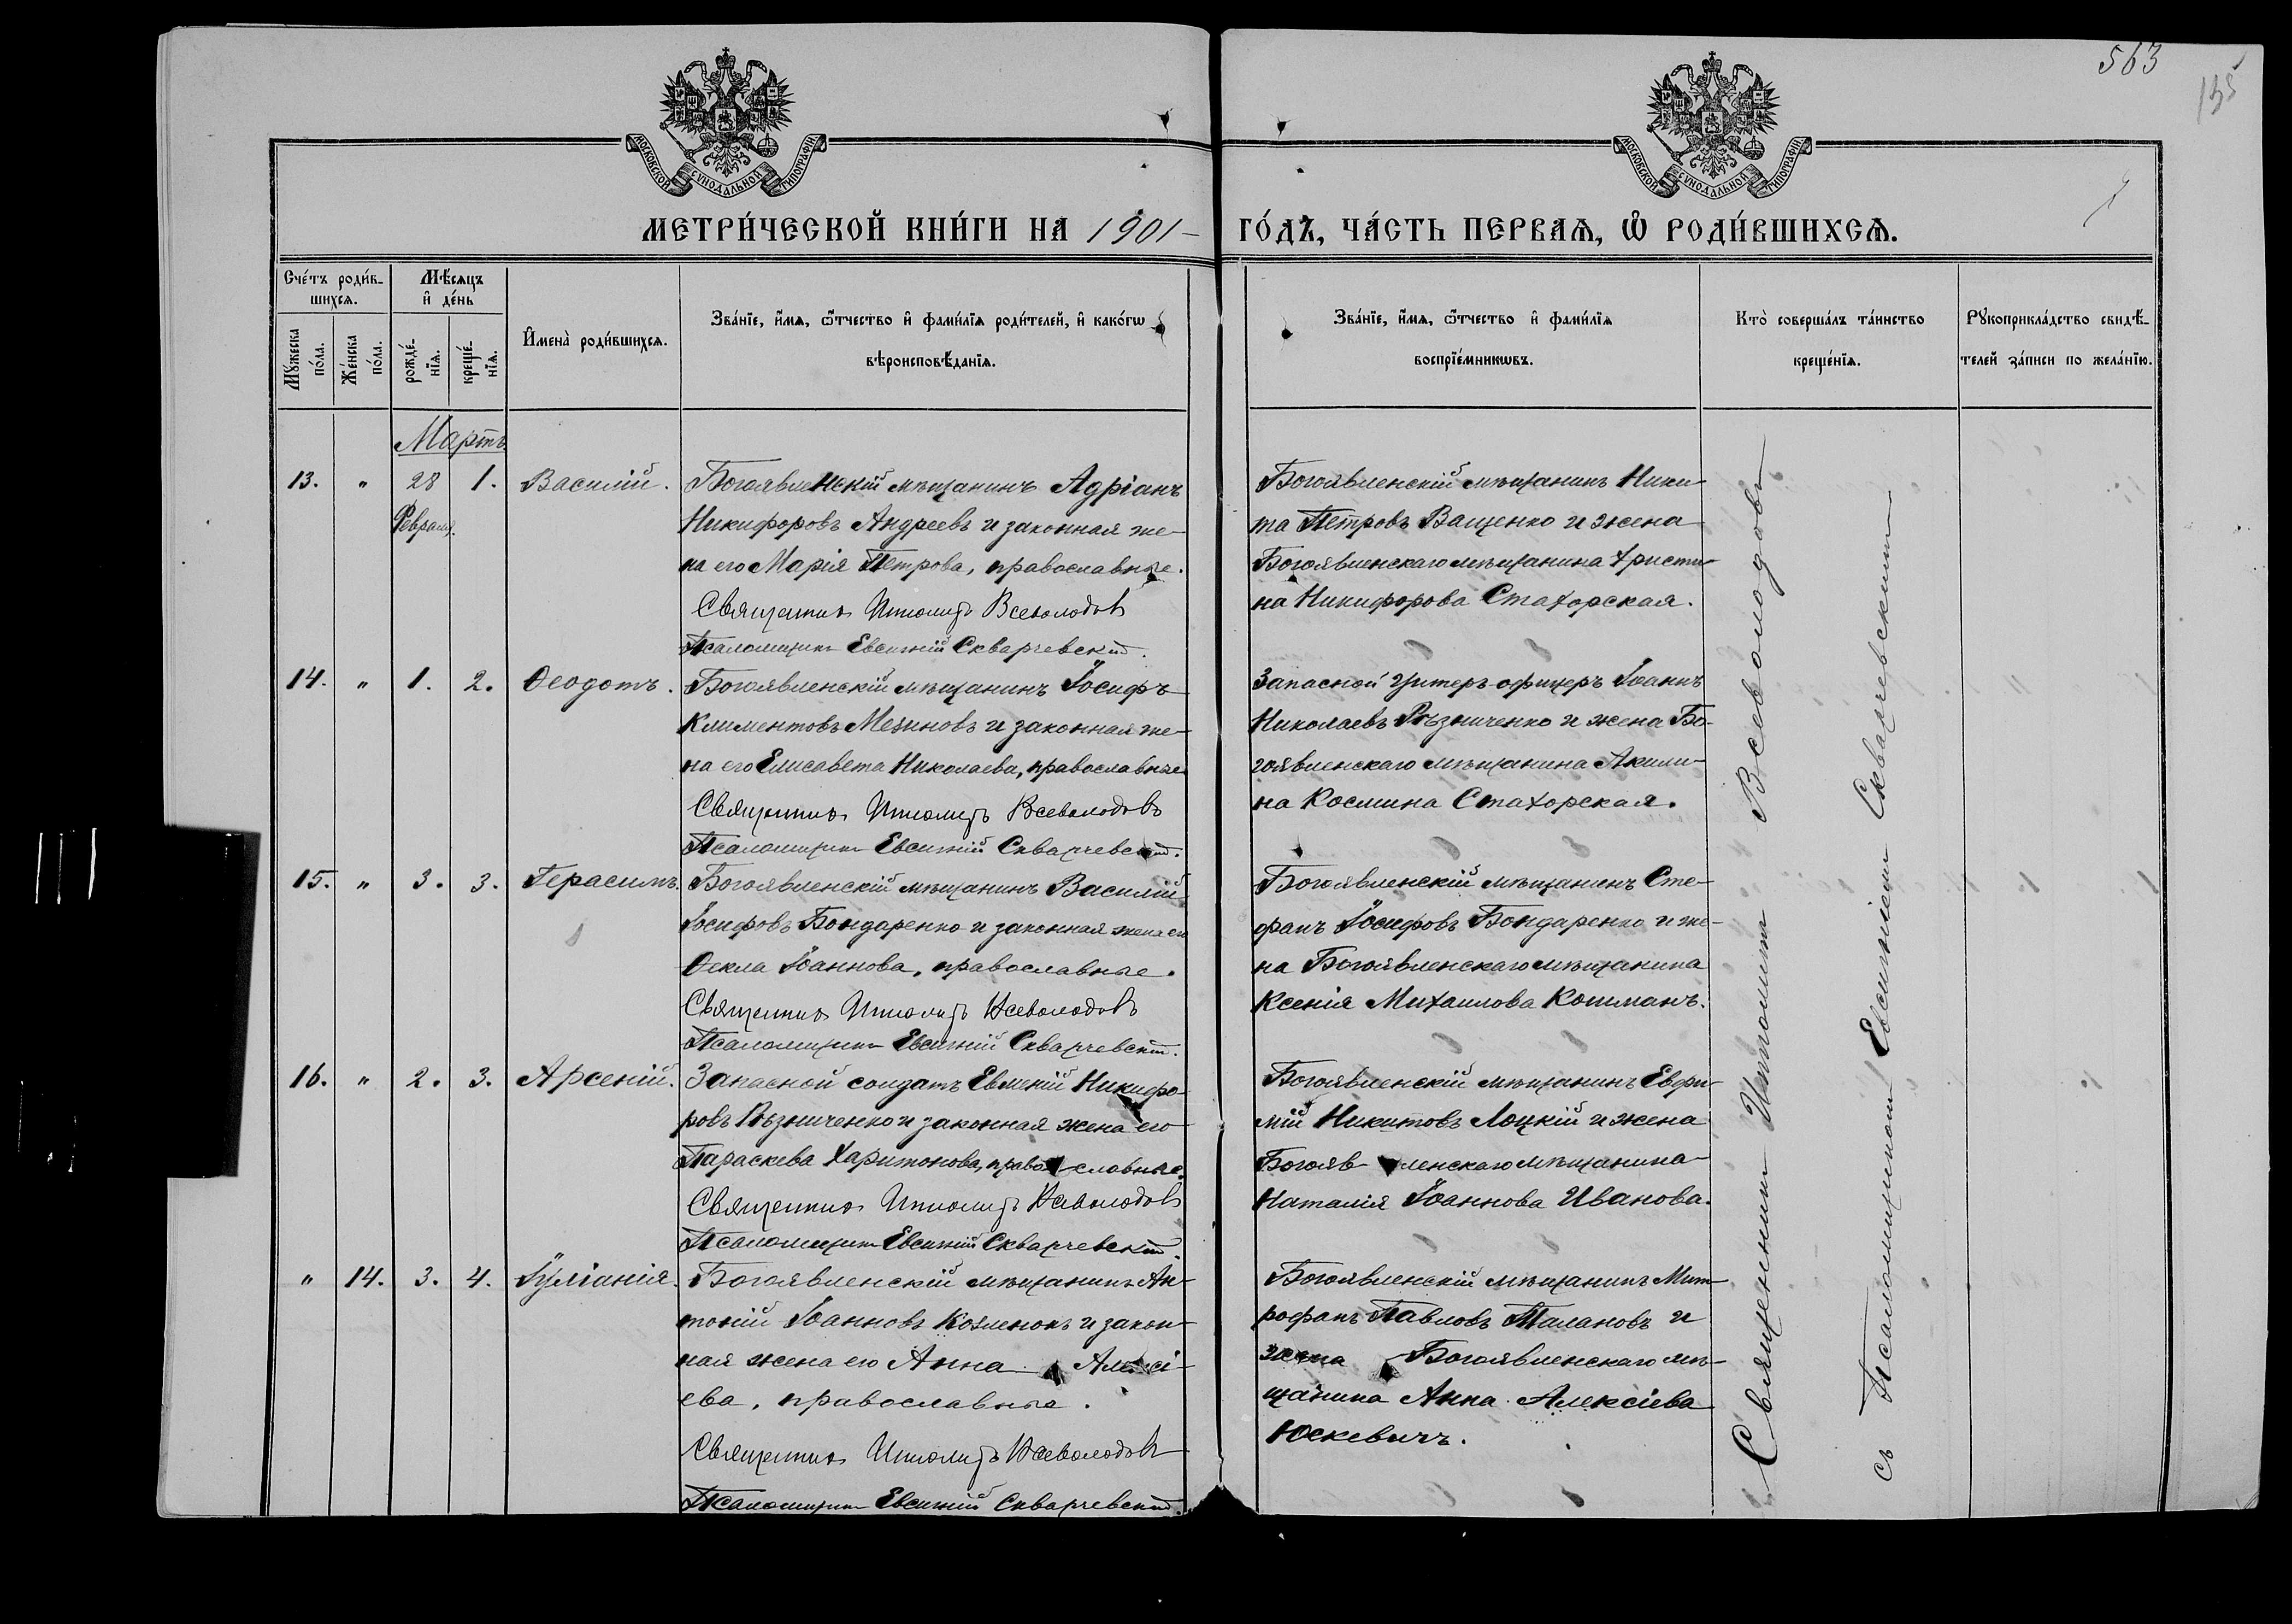 563
135
МОСКОВСКОЙ СѴНОДАЛЬНОЙ ТИПОГРАФІИ.
МОСКОВСКОЙ СѴНОДАЛЬНОЙ ТИПОГРАФІИ.
МЕТРИ́ЧЕСКОЙ КНИ́ГИ НА 1901 ГО́ДЪ, ЧА́СТЬ ПЕРВАѦ, Ѽ РОДИ́ВШИХСѦ.
Сче́тъ роди́в-
шихсѧ.
Мѣ́сѧцъ
и҆ де́нь
Мꙋ́жеска
по́ла.
Же́нска
по́ла.
рожде́-
нїѧ.
креще́-
нїѧ.
И҆мена̀ роди́вшихсѧ.
Зва́нїе, и҆́мѧ, ѻ҆́тчество и҆ фами́лїѧ роди́телей, и҆ како́гѡ
вѣроисповѣ́данїѧ.
Зва́нїе, и҆́мѧ, ѻ҆́тчество и҆ фами́лїѧ
воспрїе́мникѡвъ.
Кто̀ соверша́лъ та́инство
креще́нїѧ.
Рꙋкоприкла́дство свидѣ́-
телей за́писи по жела́нїю.
Мартъ
13. " 28 1. Василій.
Февраля.
Богоявленскій мѣщанинъ Адріанъ
Никифоровъ Андреевъ и законная же-
на его Марія Петрова, православные.
Священникъ Ипполитъ Всеволодовъ
Псаломщикъ Евсигній Скварчевскій.
Богоявленскій мѣщанинъ Ники-
та Петровъ Ващенко и жена
Богоявленскаго мѣщанина Христи-
на Никифорова Стахорская.
14. " 1. 2. Ѳеодотъ.
Богоявленскій мѣщанинъ Іосифъ
Климентовъ Мезиновъ и законная же-
на его Елисавета Николаева, православные
Священникъ Ипполитъ Всеволодовъ
Псаломщикъ Евсигній Скварчевскій.
Запасной унтеръ-офицеръ Іоаннъ
Николаевъ Рѣзниченко и жена Бо-
гоявленскаго мѣщанина Акили-
на Космина Стахорская.
15. " 3. 3. Герасимъ.
Богоявленскій мѣщанинъ Василій
Іосифовъ Бондаренко и законная жена его
Ѳекла Іоаннова, православные.
Священникъ Ипполитъ Всеволодовъ
Псаломщикъ Евсигній Скварчевскій.
Богоявленскій мѣщанинъ Сте-
фанъ Іосифовъ Бондаренко и же-
на Богоявленскаго мѣщанина
Ксенія Михаилова Кошманъ.
16. " 2. 3. Арсеній.
Запасной солдатъ Евмѣній Никифо-
ровъ Рѣзниченко и законная жена его
Параскева Харитонова, право-славные.
Священникъ Ипполитъ Всеволодовъ
Псаломщикъ Евсигній Скварчевскій.
Богоявленскій мѣщанинъ Евфи-
мій Никитовъ Лоцкій и жена
Богояв-ленскаго мѣщанина
Наталія Іоаннова Иванова.
" 14. 3. 4. Іуліанія.
Богоявленскій мѣщанинъ Ан-
тоній Іоанновъ Козленокъ и закон-
ная жена его Анна Алексі-
ева, православные.
Священникъ Ипполитъ Всеволодовъ
Псаломщикъ Евсигній Скварчевскій.
Богоявленскій мѣщанинъ Мит-
рофанъ Павловъ Талановъ и
жена Богоявленскаго мѣ-
щанина Анна Алексіева
Юскевичъ.
Священникъ Ипполитъ Всеволодовъ
съ Псаломщикомъ Евсигніемъ Скварчевскимъ